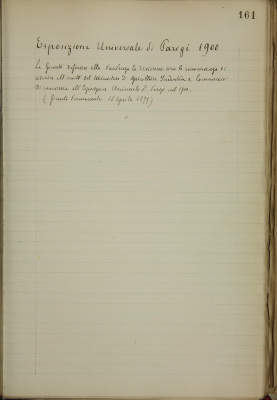 161
Esposizione Universale di Parigi 1900
La Giunta riferisce alla Presidenza la decisione con la
all'invito del Ministero di Agricoltura Industria e Commercio
di concorrere all'Esposizione Universale di Parigi nel 1900.
(Giunta Camerale 18 Aprile 1898)